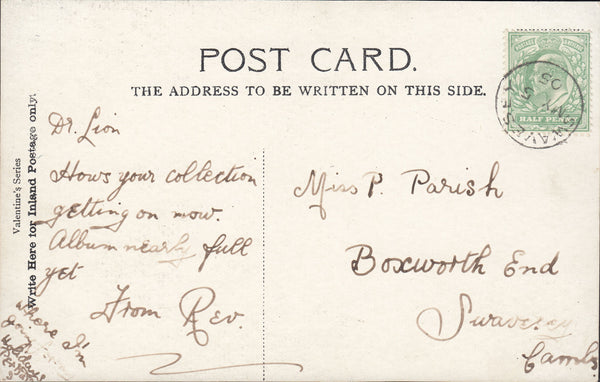 POST CARD.
THE ADDRESS TO BE WRITTEN ON THIS SIDE.
HALF PENNY
Valentine's Series
Write Here for Inland Postage only.
Dr. Lion
Hows your collection
getting on now.
Album nearly full
yet
From Rev.
where I'm
Miss P. Parish
Boxworth End
Swavesey
Cambs